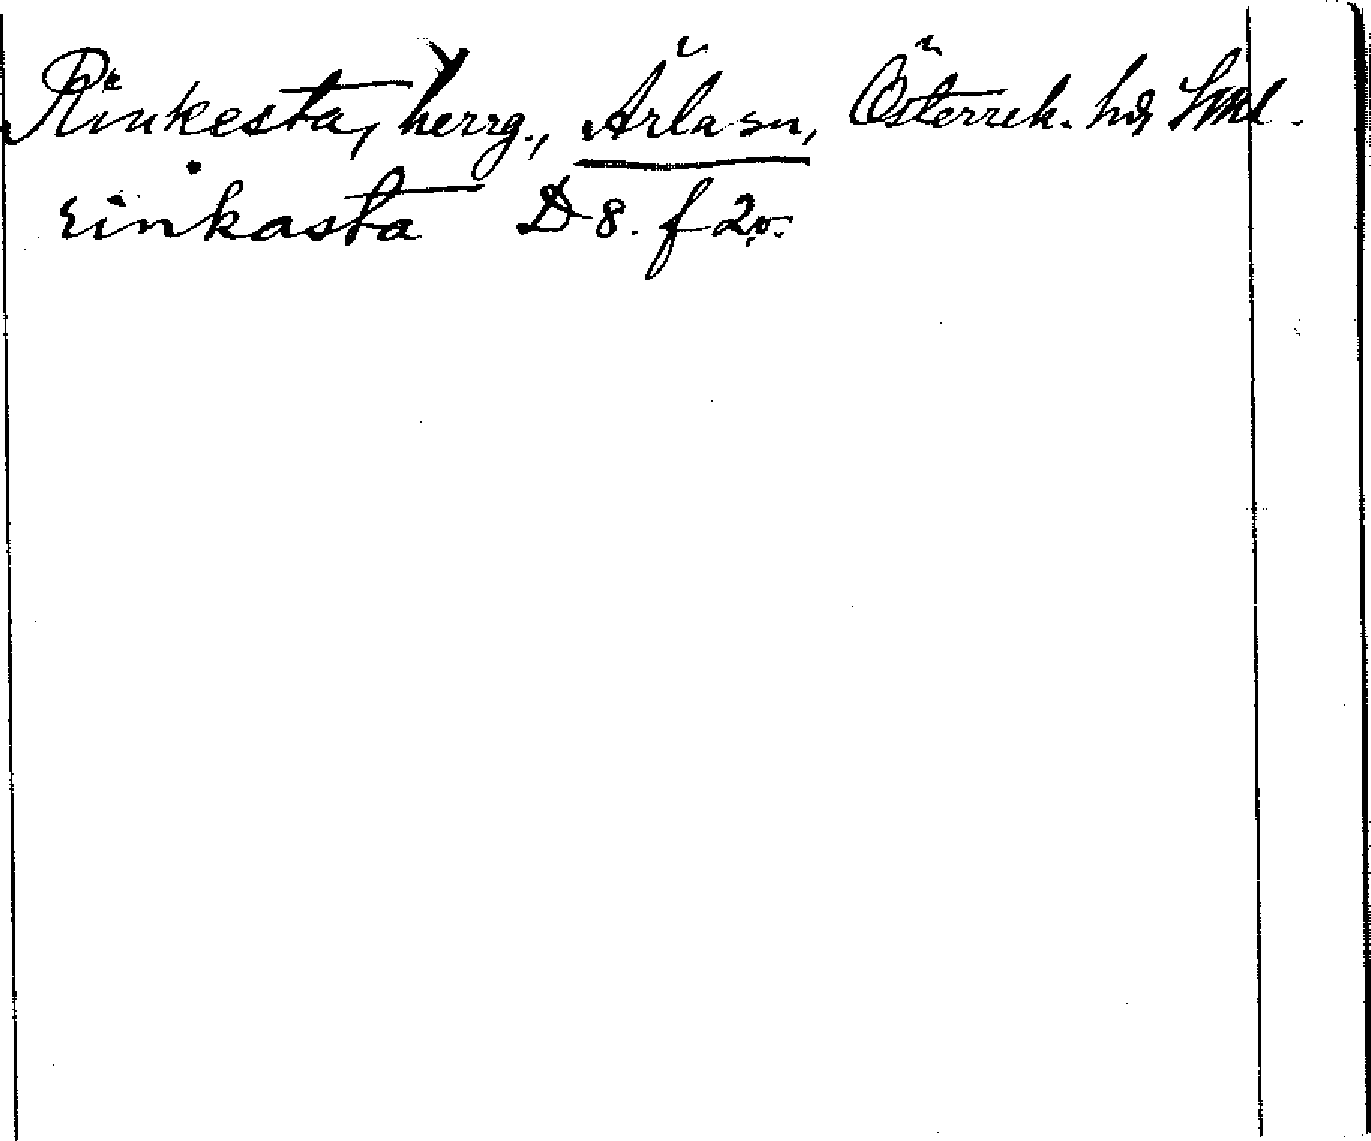 Rinkesta, herrg., Ärla sn, Österrek. hd Sml.
rinkasta D 8. f 2v.